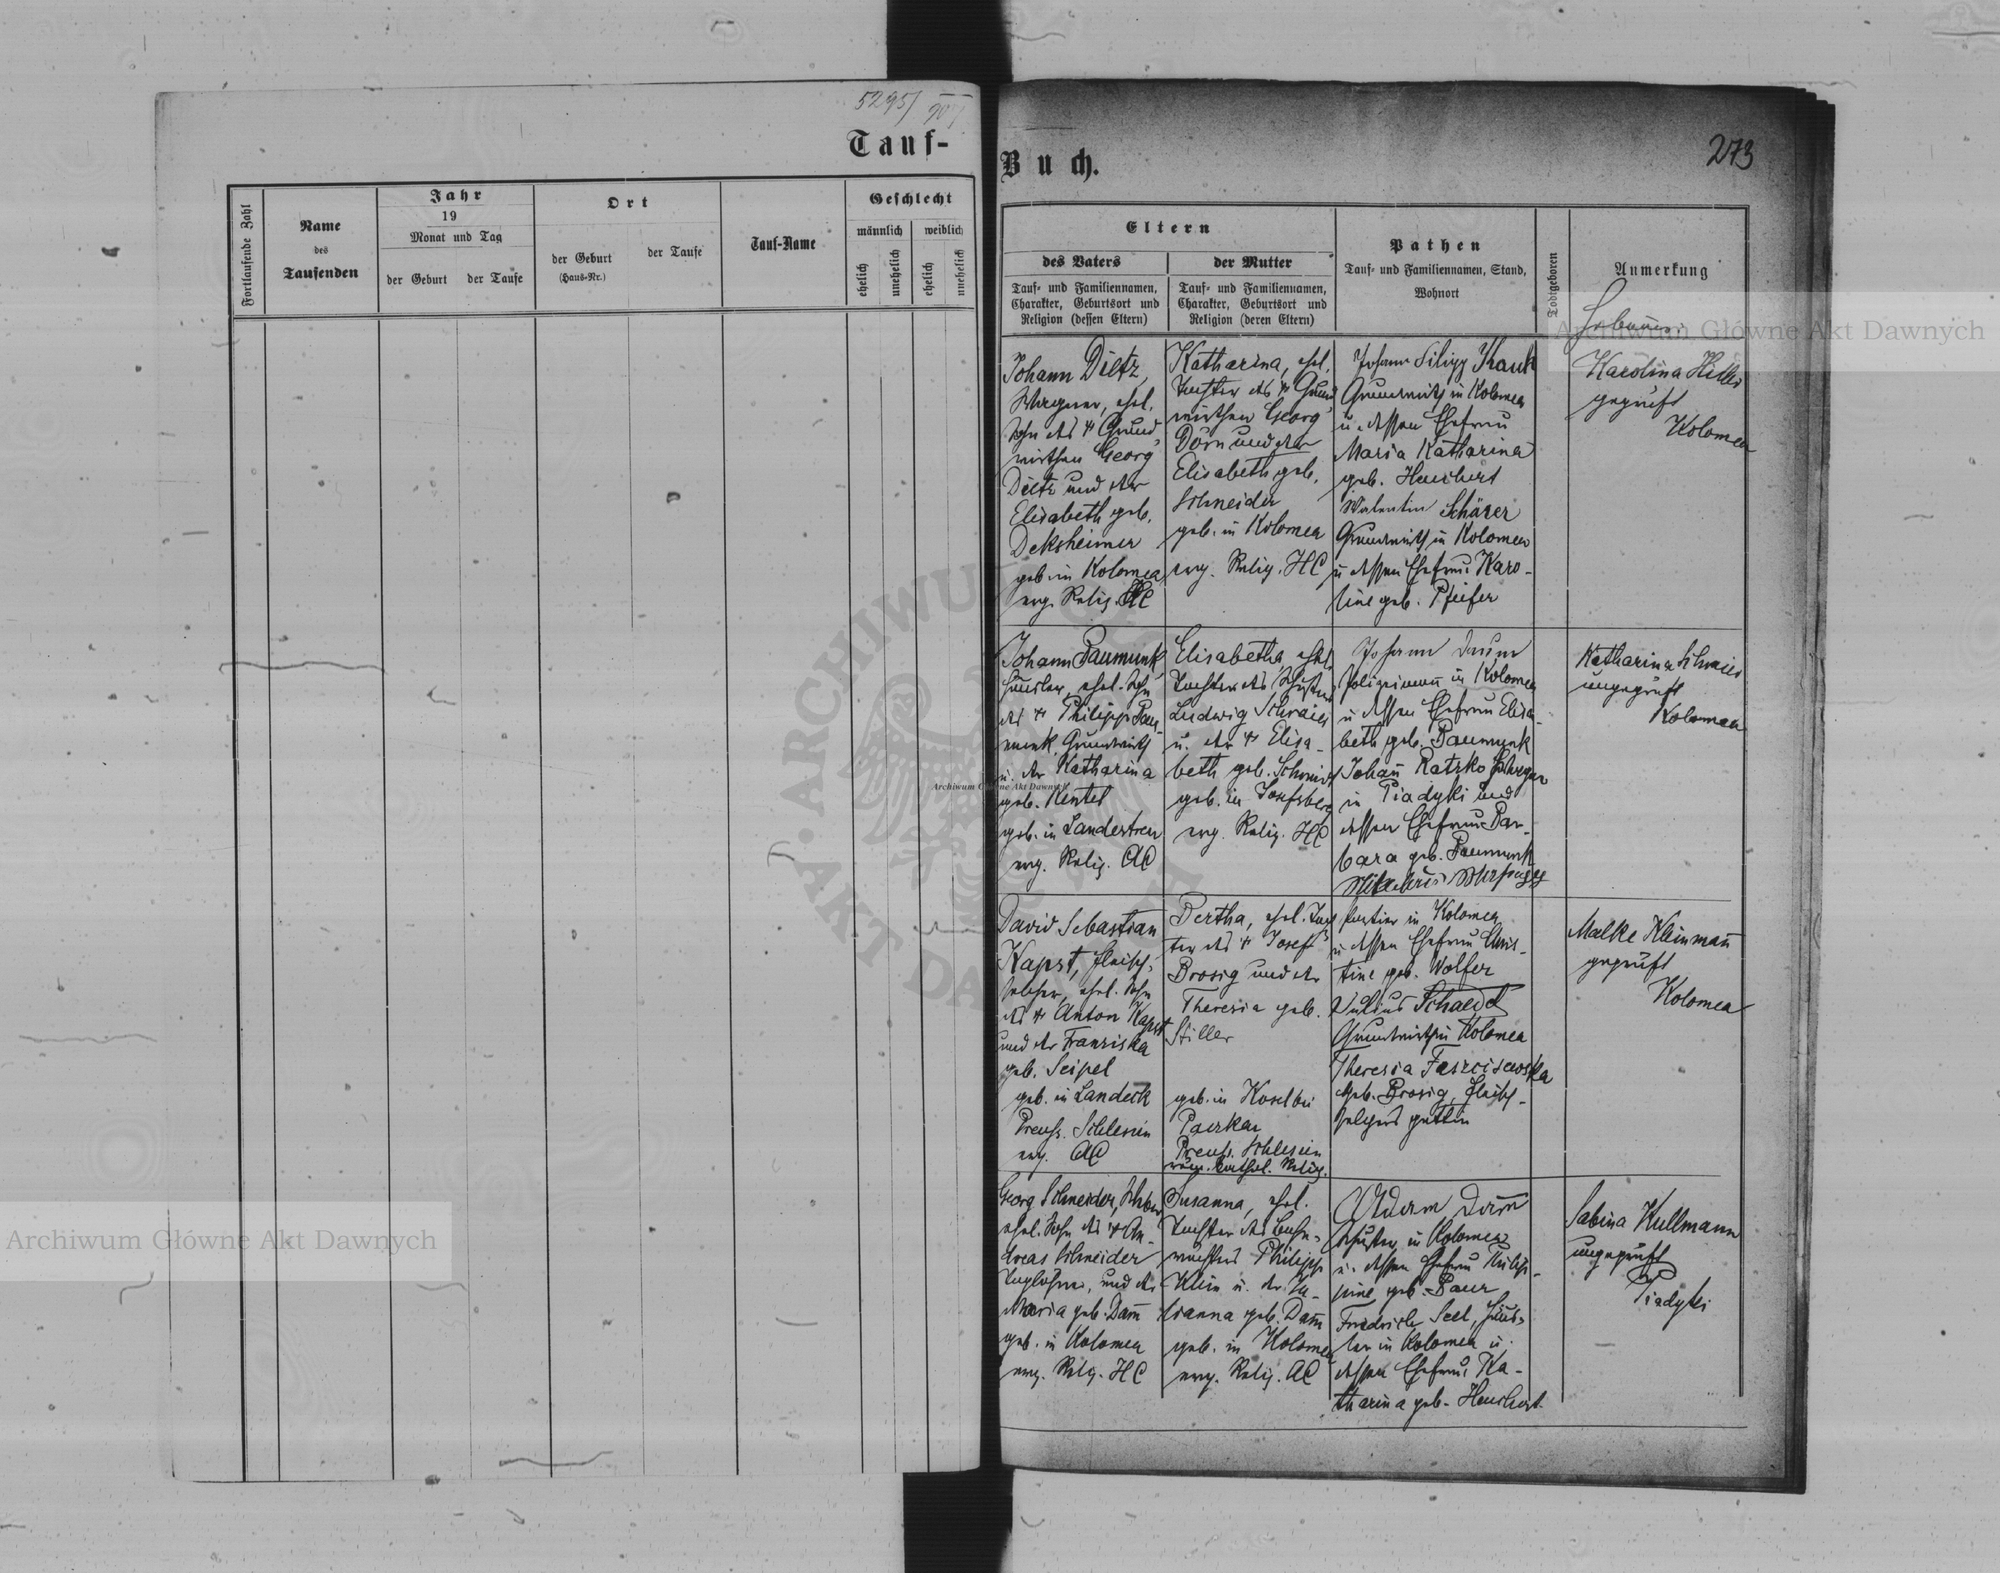 5295/907
Tauf-
Fortlaufende Zahl
Name
des
Taufenden
Jahr
19
Monat und Tag
der Geburt
der Taufe
Ort
der Geburt
(Haus-Nr.)
der Taufe
Tauf-Name
Geschlecht
männlich
weiblich
ehelich
unehelich
ehelich
unehelich
Buch.
273
Eltern
des Vaters
Tauf- und Familiennamen,
Charakter, Geburtsort und
Religion (dessen Eltern)
der Mutter
Tauf- und Familiennamen,
Charakter, Geburtsort und
Religion (deren Eltern)
Pathen
Tauf- und Familiennamen, Stand,
Wohnort
Todtgeboren
Anmerkung
Johann Dietz,
Wagner, ehel.
Sohn des + Grund
wirthen Georg
Dietz und der
Elisabeth geb.
Deksheimer
geb. in Kolomea
evg. Relig. HC
Katharina, ehel.
Tochter des + Grund
wirthen Georg
Dorn und der
Elisabeth geb.
Schneider
geb. in Kolomea
evg. Relig. HC
Johann Filipp Kauk
Grundwirth in Kolomea
u. dessen Ehefrau
Maria Katharina
geb. Heuchert
Valentin Schärer
Grundwirth in Kolomea
u dessen Ehefrau Karo-
line geb. Pfeifer
Hebamme:
Karolina Hiller
geprüft
Kolomea
Johann Paumunk
Häusler, ehel. Sohn
des + Philipp Pau-
munk, Grundwirth
u. der Katharina
geb. Kentel
geb. in Landestreu
evg. Relig. AC
Elisabetha, ehel.
Tochter des Schusters
Ludwig Schraier
u. der + Elisa-
beth geb. Schmidt
geb. in Josefsberg
evg. Relig. HC
Johann Daum
Polizeimann in Kolomea
u dessen Ehefrau Elisa-
beth geb. Paumunk
Johann Ratzko
in Piadyki und
dessen Ehefrau Bar-
bara geb. Paumunk
Katharina Schraier
ungeprüft
Kolomea
David Sebastian
Kapst, Fleisch-
selcher, ehel. Sohn
des + Anton Kapst
und der Franziska
geb. Seipel
geb. in Landeck
Preuss. Schlesien
evg. AC
Bertha, ehel. Toch
ter des + Josef
Brosig und der
Theresia geb.
Stiller
geb. in Kosel bei
Preuss. Schlesien
röm. kathol. Relig.
Portier in Kolomea
u dessen Ehefrau Chris-
tine geb. Wolfer
Julius Schaedel
Grundwirth in Kolomea
Theresia
geb. Brosig, Fleisch-
selchers gattin
Malke Kleinmann
geprüft
Kolomea
Georg Schneider, Weber
ehel. Sohn des + An-
dreas Schneider
Taglöhner, und der
Maria geb. Dam
geb. in Kolomea
evg. Relig. HC
Susanna, ehel.
Tochter des Bahn-
wächters Philipp
Klein u. der Ju-
lianna geb. Dam
geb. in Kolomea
evg. Relig. AC
Adam Dam
Schuster in Kolomea
u. dessen Ehefrau Philip-
pine geb. Baur
Friedrich Seel, Häus-
ler in Kolomea u.
dessen Ehefrau Ka-
tharina geb. Heuchert
Sabina Kullmann
ungeprüft
Piadyki
Archiwum Główne Akt Dawnych
Archiwum Główne Akt Dawnych
Archiwum Główne Akt Dawnych